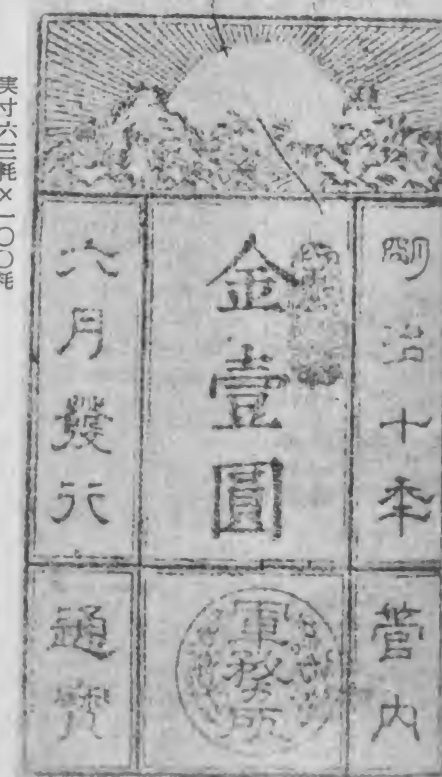 明治十年
管内
金壹圓
軍務所
六月發行
通寳
実寸六三粍×一〇〇粍